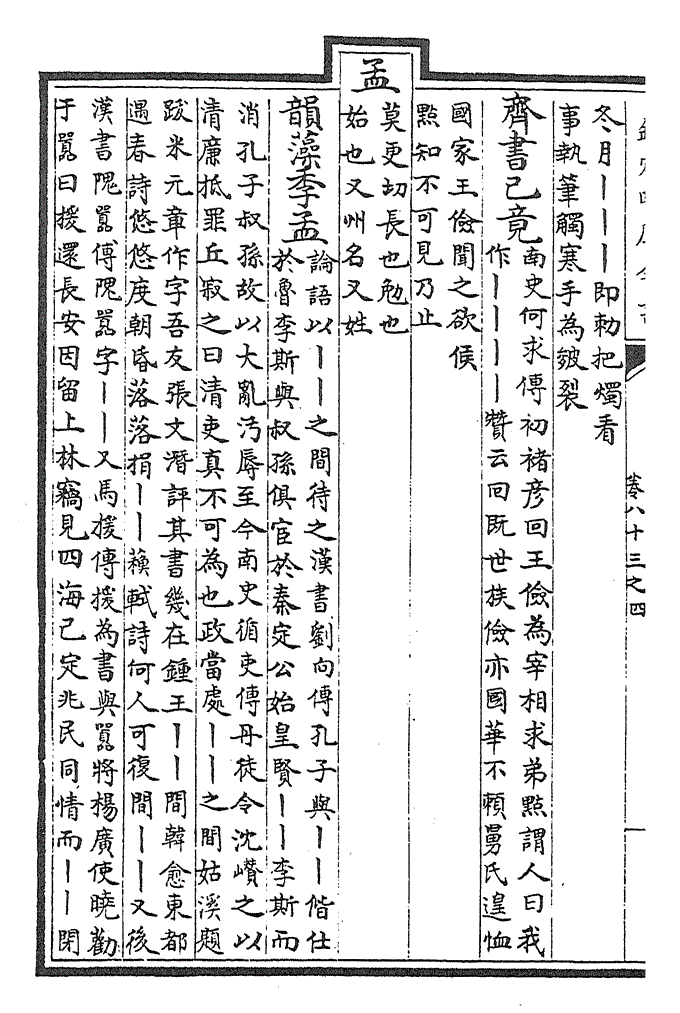 卷八十三之四
冬月丨丨丨即勅把燭看
事執筆觸寒手為皴裂
齊書已竟
南史何求傳初褚彦回王儉為宰相求弟點謂人曰我
作丨丨丨丨贊云回既世族儉亦國華不賴舅氏遑恤
國家王儉聞之欲候
點知不可見乃止
孟
莫更切長也勉也
始也又州名又姓
韻藻季孟
論語以丨丨之間待之漢書劉向傳孔子與丨丨偕仕
於魯李斯與叔孫俱宦於秦定公始皇賢丨丨李斯而
消孔子叔孫故以大亂汚辱至今南史循吏傳丹徒令沈巑之以
清廉抵罪丘寂之曰清吏真不可為也政當處丨丨之間姑溪題
跋米元章作字吾友張文潛評其書幾在鍾王丨丨間韓愈東都
遇春詩悠悠度朝昏落落捐丨丨蘇軾詩何人可復間丨丨又後
漢書隗囂傳隗囂字丨丨又馬援傳援為書與囂將楊廣使曉勸
于囂曰援還長安因留上林竊見四海已定兆民同情而丨丨閉